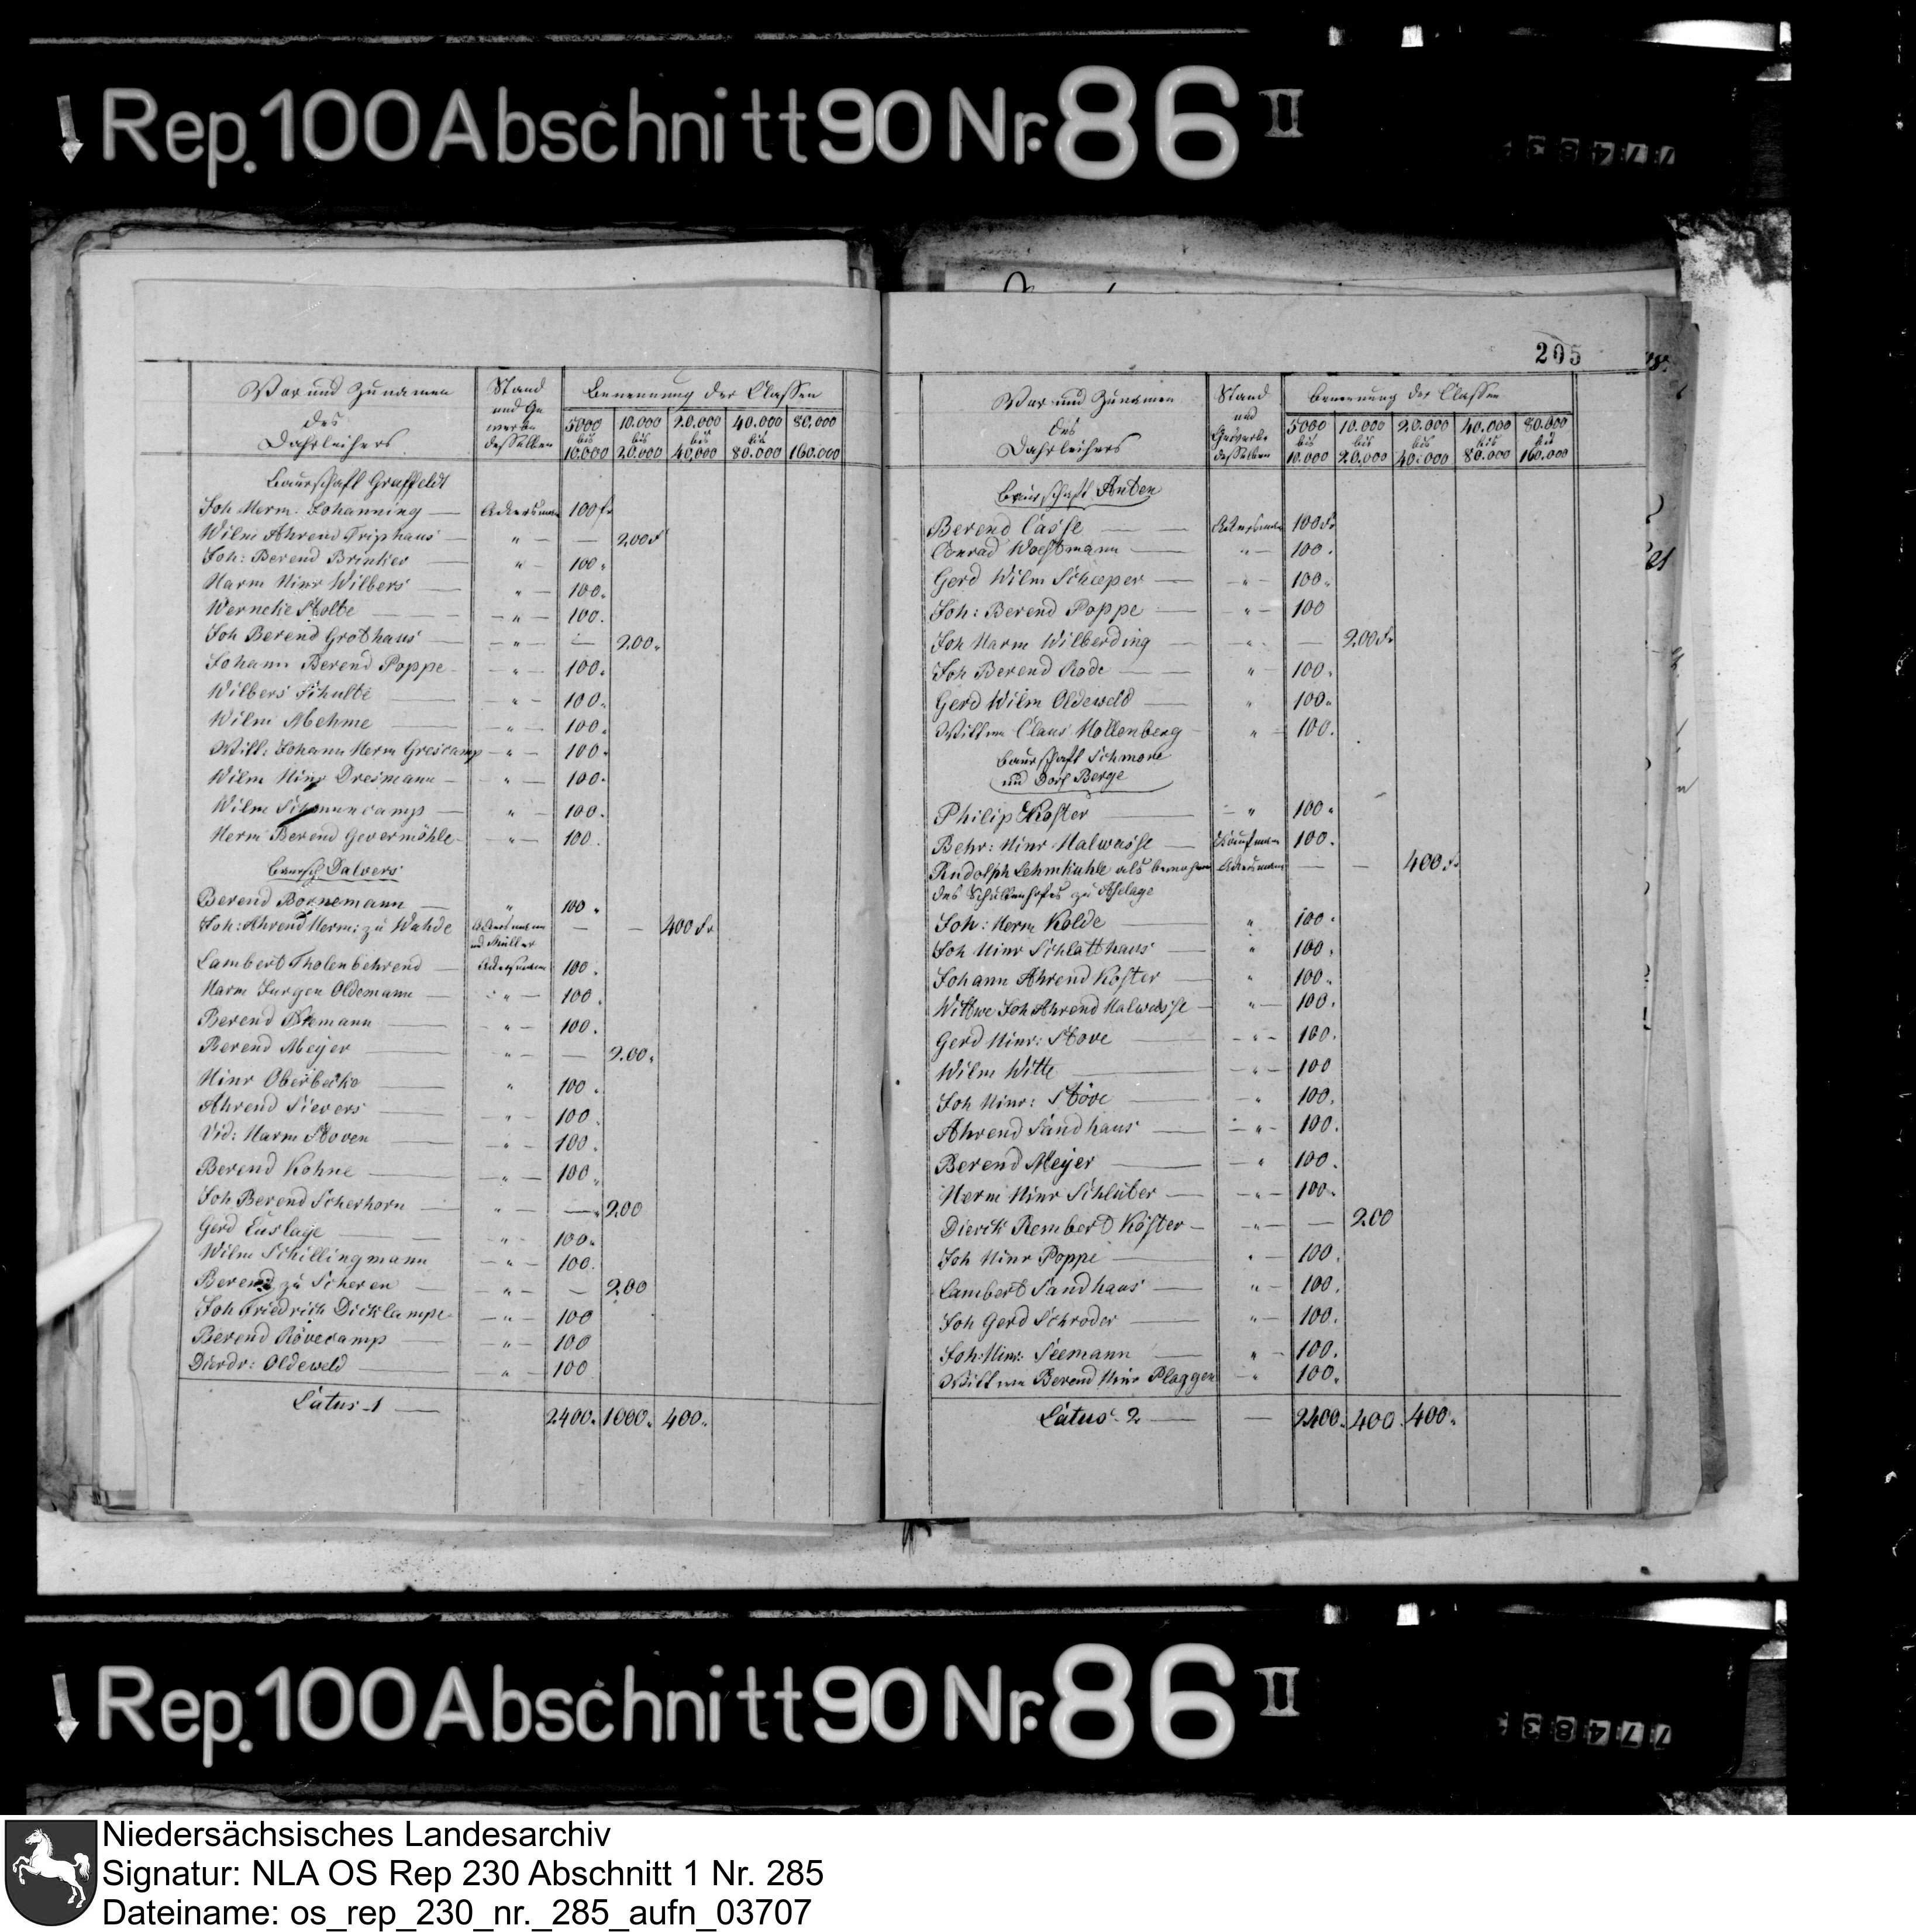 Rep. 100 Abschnitt 90 Nr. 86 II
77483
Vor und Zunamen des Dahrleihers | Stand und Gewerbe desselben | Benennung der Classen
5000 bis 10.000 | 10.000 bis 20.000 | 20.000 bis 40,000 | 40.000 bis 80.000 | 80,000 160.000
Baurschaft Graffeldt
Joh Herm. Johanning — Ackersmann 100 fr
Wilm Ahrend Triphaus — " — — 200 f
Joh: Berend Brinker — " — 100.
Harm Hinr Wilbers — " — 100.
Werneke Stolte — " — 100.
Joh Berend Grothaus — " — — 200.
Johann Berend Poppe — " — 100.
Wilbers Schulte — " — 100.
Wilm Mehme — " — 100.
Witt: Johann Herm Grescamp — " — 100.
Wilm Hinr Dresmann — " — 100.
Wilm — " — 100.
Herm Berend Gevermöhle — " — 100.
Baursch Dalvers
Berend Bornemann — " 100.
Joh: Ahrend Herm: zu Wahde Ackersmann und Müller — — 400 fr
Lambert Tholenbehrend — Ackersmann 100.
Harm Jurgen Oldemann — " — 100.
Berend — " — 100.
Berend Meyer — " — — 200.
Hinr Oberbecke — " 100.
Ahrend Sievers — " — 100.
Vid: Harm Stoven — " — 100.
Berend Kohne — " — 100.
Joh Berend Scherhorn — " — — 200
Gerd Euslage — " — 100.
Wilm Schillingmann — " — 100.
Berend zu Scheren — " — — 200
Joh Friedrich Dicklampe — " — 100
Berend Rövecamp — " — 100
Dierdr: Oldeweld — " 100
Latus 1 — 2400. 1000. 400.
205
Vor und Zunamen des Dahrleihers | Stand und Gewerbe desselben | Benennung der Classen
5000 bis 10.000 | 10.000 bis 20.000 | 20.000 bis 40.000 | 40.000 bis 80.000 | 80.000 bis 160.000
Baurschaft Anten
Berend Casse — Ackersmann 100 fr
Conrad Woestmann — " — 100.
Gerd Wilm Schaeper — " — 100.
Joh: Berend Poppe — " — 100
Joh Harm Wilberding — " — 200 fr
Joh Berend Rode — " — 100.
Gerd Wilm Oldeweld — " 100.
Wittwe Claus Hollenberg " — 100.
Baurschaft Schmone
und Dorf Berge
Philip Köster — " 100.
Behr: Hinr Halwasse — Kaufmann 100.
Rudolph Lehmkuhle als bewohner Ackersmann — — 400 fr
des Schultenhofes zu Aslage
Joh: Herm Kolde " 100.
Joh Hinr Schlatthaus — " 100.
Johann Ahrend Köster — " 100.
Wittwe Joh Ahrend Halwasse — " — 100.
Gerd Hinr: Stove — " — 100.
Wilm Witte — " — 100
Joh Hinr: Stöve — " 100.
Ahrend Sandhaus — " — 100.
Berend Meyer — " 100.
Herm Hinr Schluter — " — 100.
Dierck Rembert Köster — " — — 200
Joh Hinr Poppe — " — 100.
Lambert Sandhaus — " — 100.
Joh Gerd Schroder — " — 100.
Joh: Hinr: Seemann — " — 100.
Wittwe Berend Hinr Plaggen — " 100.
Latus 2 — — 2400. 400. 400.
Rep. 100 Abschnitt 90 Nr. 86 II
77483
Niedersächsisches Landesarchiv
Signatur: NLA OS Rep 230 Abschnitt 1 Nr. 285
Dateiname: os_rep_230_nr._285_aufn_03707